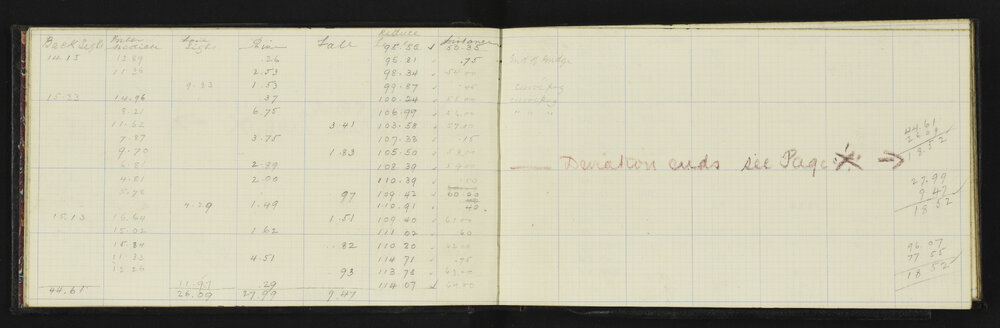 Back Sight Inter mediate Fore Sight Rise Fall Reduce Distance
95.55 53.35
14.15 13.89 .26 95.81 .75 End of Bridge
11.36 2.53 98.34 54.00
9.83 1.53 99.87
15.33 14.96 37 100.24 55.00
8.21 6.75 106.99 56.00
11.62 3.41 103.58 57.00
7.87 3.75 107.33 .15
9.70 1.83 105.50 58.00
6.81 2.89 108.39 59.00
4.81 2.00 110.39
5.78 97 109.42 60.00
4.29 1.49 110.91 40
15.13 16.64 1.51 109.40 61.00
15.02 1 62 111 02 .60
15.84 .82 110 20 62.00
11.33 4.51 114 71 .75
12.26 93 113 78 63.00
11.97 .29 114 07 64.00
44.61 26.09 27.99 9 47
Deviation ends see Page
44.61
26 09
18.52
27.99
9 47
18 52
96 07
77 55
18 52